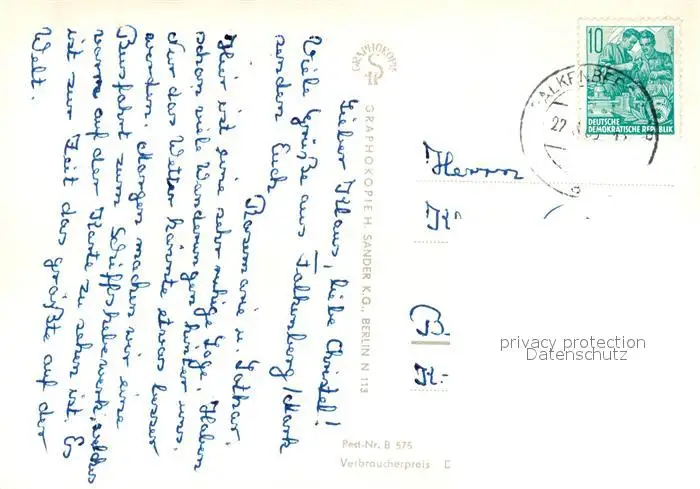 Lieber Klaus, liebe Christel!
Viele Grüße aus Falkenberg/Mark
senden Euch
Rosemarie u. Lothar.
Hier ist eine sehr ruhige Lage. Haben
schon viele Wanderungen hinter uns.
Nur das Wetter könnte etwas besser
werden. Morgen machen wir eine
Busfahrt zum Schiffshebewerk, welches
vorne auf der Karte zu sehen ist. Es
ist zur Zeit das größte auf der
Welt.
GRAPHOKOPIE
GRAPHOKOPIE H. SANDER K.G., BERLIN N 113
10
DEUTSCHE
DEMOKRATISCHE REPUBLIK
Herrn
K
(B
K
privacy protection
Datenschutz
Best-Nr. B 575
Verbraucherpreis